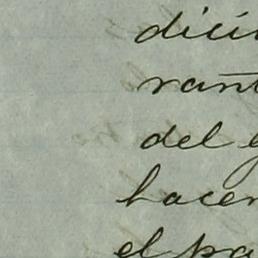 dici
rant
del e
hacer
el pa